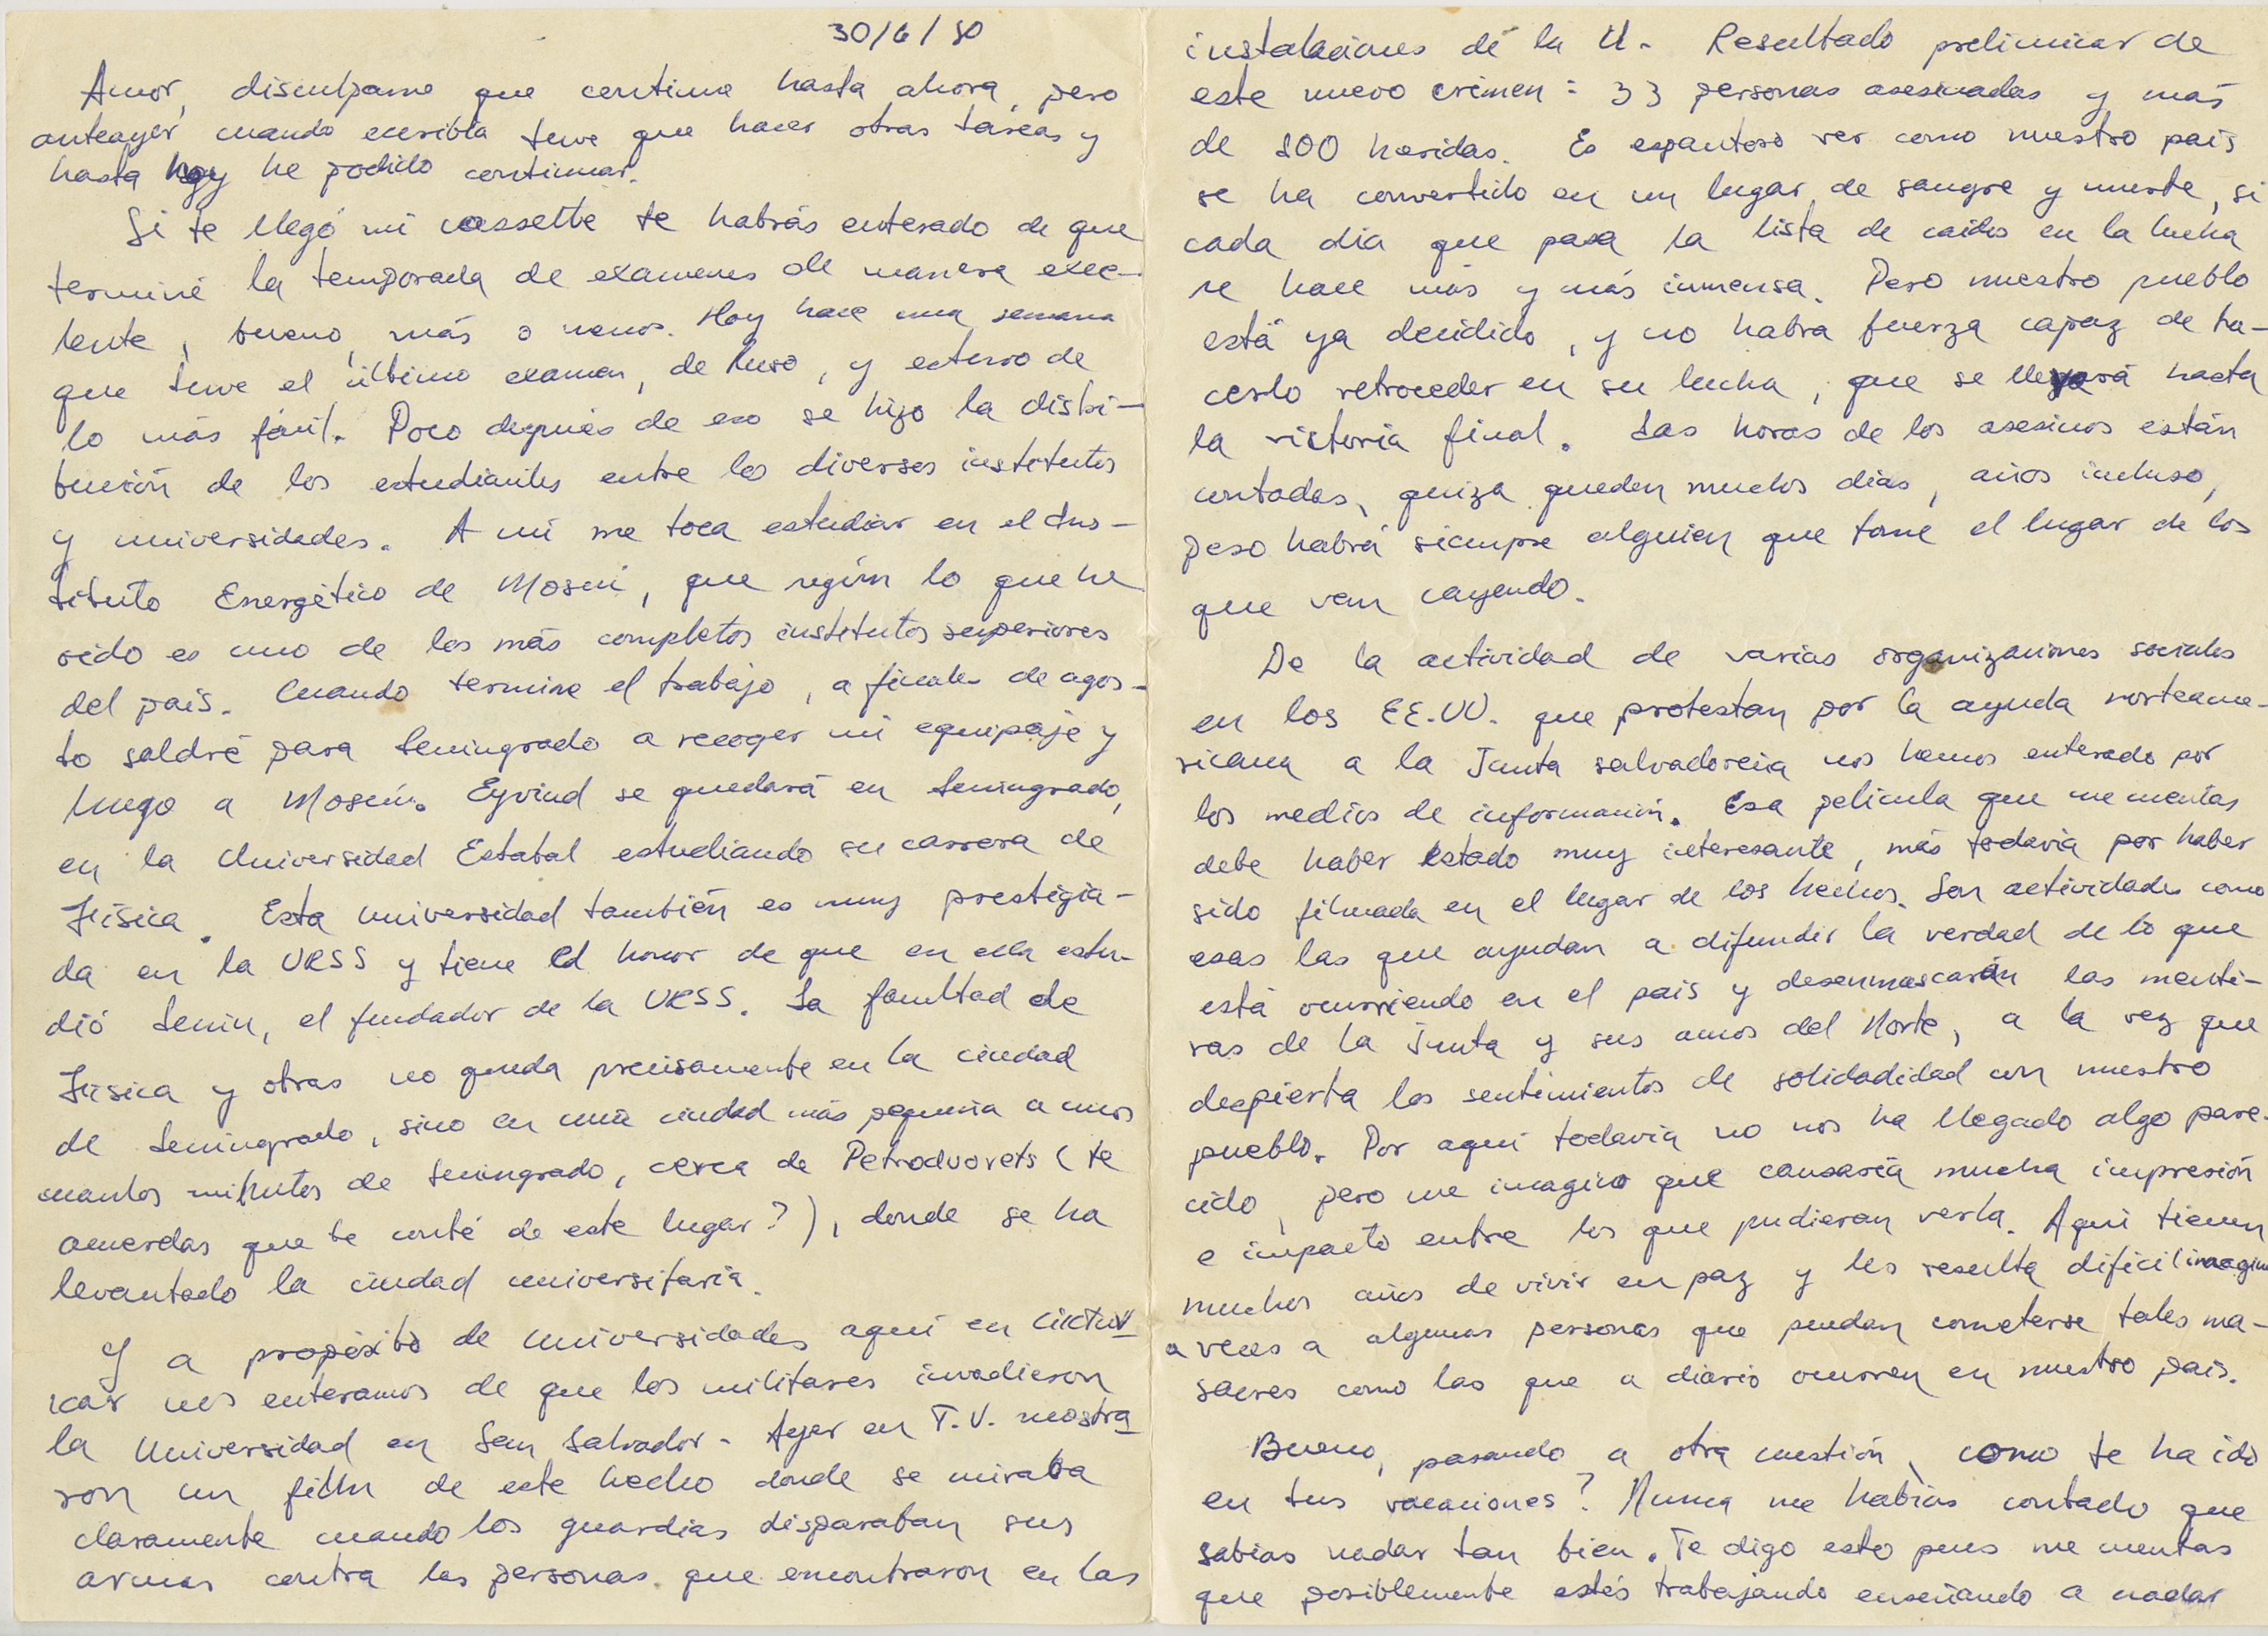 30/6/80
Amor, disculpame que continue hasta ahora, pero
anteayer cuando escribía tuve que hacer otras tareas y
hasta hoy he podido continuar.
Si te llegó mi cassette te habrás enterado de que
terminé la temporada de examenes de manera exce-
lente, bueno, más o menos. Hoy hace una semana
que tuve el último examen, de Ruso, y estuvo de
lo más fácil. Poco después de eso se hizo la distri-
bución de los estudiantes entre los diversos institutos
y universidades. A mi me toca estudiar en el Ins-
tituto Energético de Moscú, que según lo que he
oido es uno de los más completos institutos superiores
del país. Cuando termine el trabajo, a finales de agos-
to saldré para Leningrado a recoger mi equipaje y
luego a Moscú. Eyvind se quedará en Leningrado,
en la Universidad Estatal estudiando su carrera de
Física. Esta universidad también es muy prestigia-
da en la URSS y tiene el honor de que en ella estu-
dió Lenin, el fundador de la URSS. La facultad de
Física y otras no queda precisamente en la ciudad
de Leningrado, sino en una ciudad más pequeña a unos
cuantos minutos de Leningrado, cerca de Petrodvorets (te
acuerdas que te conté de este lugar?), donde se ha
levantado la ciudad universitaria.
Y a propósito de universidades, aquí en
nos enteramos de que los militares invadieron
la Universidad en San Salvador. Ayer en T.V. mostra
ron un film de este hecho donde se miraba
claramente cuando los guardias disparaban sus
armas contra las personas que encontraron en las
instalaciones de la U. Resultado preliminar de
este nuevo crimen: 33 personas asesinadas y más
de 100 heridas. Es espantoso ver como nuestro país
se ha convertido en un lugar de sangre y muerte, si
cada día que pasa la lista de caídos en la lucha
se hace más y más inmensa. Pero nuestro pueblo
está ya decidido, y no habra fuerza capaz de ha-
cerlo retroceder en su lucha, que se llevará hasta
la victoria final. Las horas de los asesinos están
contadas, quiza queden muchos días, años incluso,
pero habrá siempre alguien que tome el lugar de los
que van cayendo.
De la actividad de varias organizaciones sociales
en los EE.UU. que protestan por la ayuda norteame-
ricana a la Junta salvadoreña nos hemos enterado por
los medios de información. Esa película que me cuentas
debe haber estado muy interesante, más todavía por haber
sido filmada en el lugar de los hechos. Son actividades como
esas las que ayudan a difundir la verdad de lo que
está ocurriendo en el país y desenmascarán las menti-
ras de la Junta y sus amos del Norte, a la vez que
despierta los sentimientos de solidadidad con nuestro
pueblo. Por aquí todavía no nos ha llegado algo pare-
cido, pero me imagino que causaría mucha impresión
e impacto entre los que pudieran verla. Aquí tienen
muchos años de vivir en paz y les resulta difícil imagin
a veces a algunas personas que puedan cometerse tales ma-
sacres como las que a diario ocurren en nuestro país.
Bueno, pasando a otra cuestión, como te ha ido
en tus vacaciones? Nunca me habías contado que
sabías nadar tan bien. Te digo esto pues me cuentas
que posiblemente estés trabajando enseñando a nadar